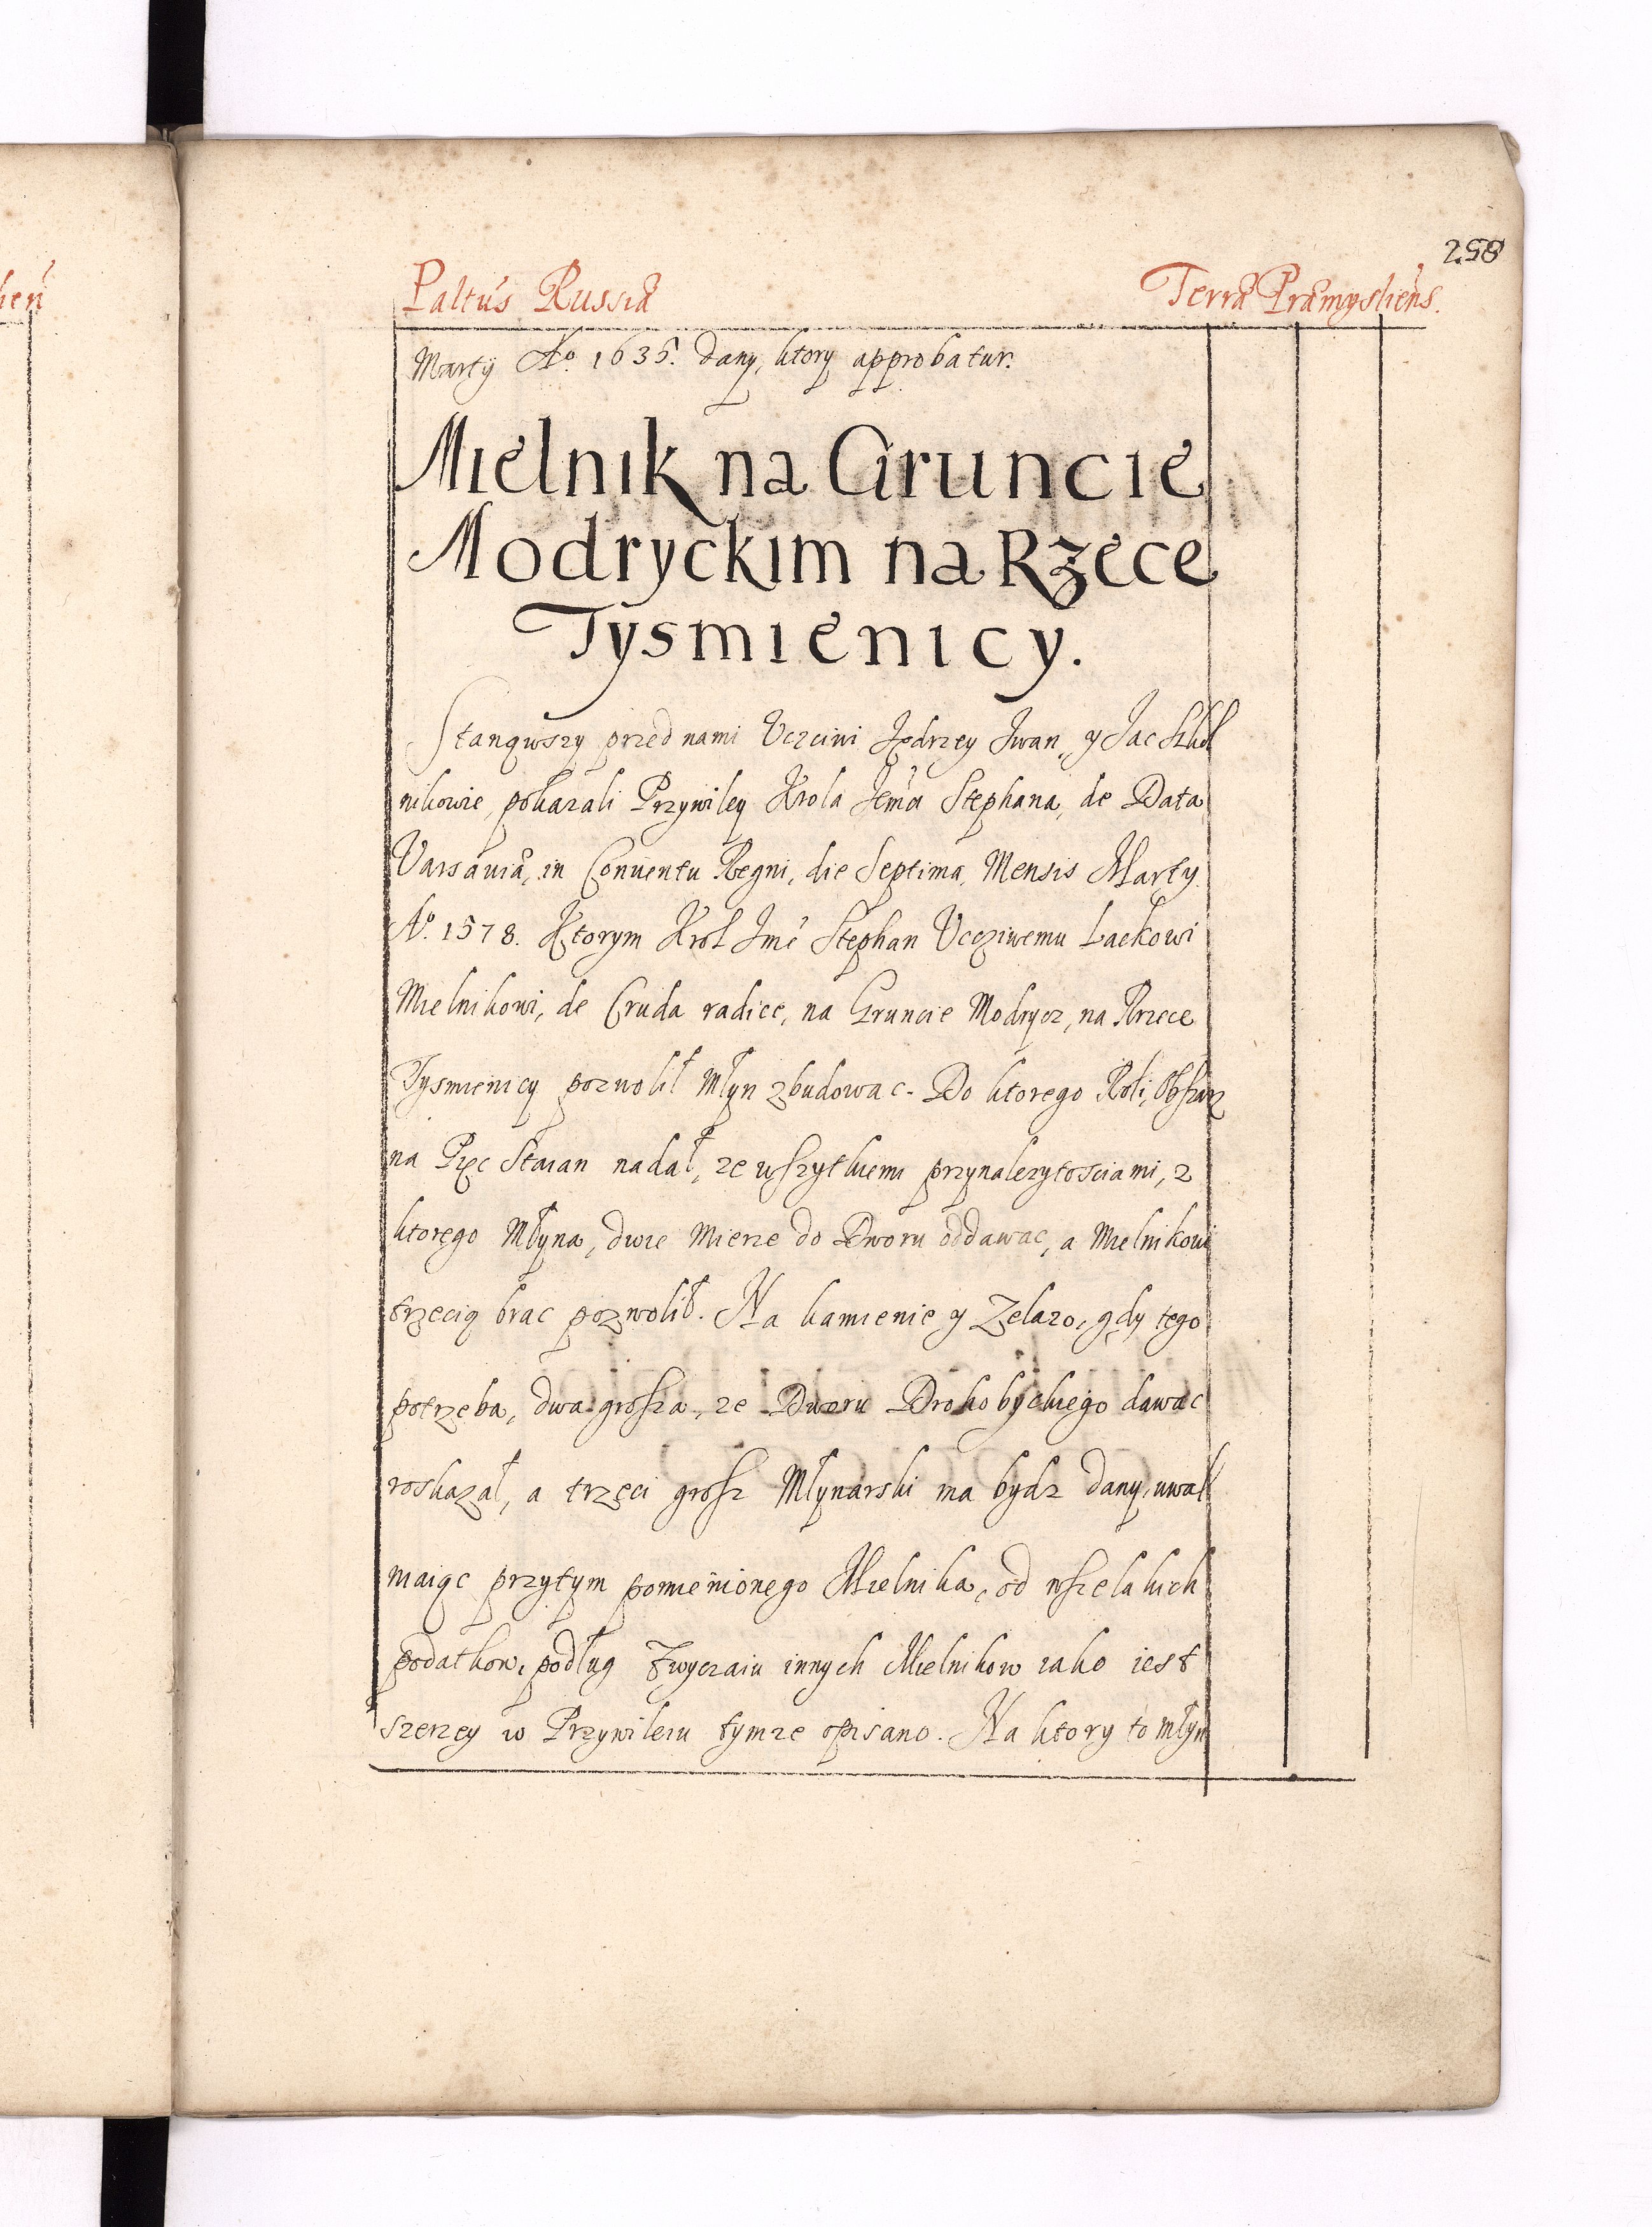 258
Paltus Russiæ Terræ Præmysliens.
Martÿ Ao. 1635. dany, ktory approbatur.
Mielnik na Gruncie
Modryckim na Rzece
Tysmienicy.
Stanąwszy przed nami Uczciwi Jędrzey Jwan, y Jac
nikowie, pokazali Przywiley Krola Jem̃ci Stephana, de Data
Varsaviæ, in Conventu Regni, die Septima, Mensis Marty.
Ao. 1578. Ktorym Krol Jmć Stephan Ucziwemu Lackowi
Mielnikowi, de Cruda radice, na Gruncie Modrycz, na Rzece
Tysmienicy pozwolił Młyn zbudowac. Do ktorego Roli, Obszar
na Pięc Staian nadał, ze wszytkiemi przynalezytosciami, z
ktorego Młyna, dwie Mierze do Dworu oddawac, a Mielnikowi
trzecią brac pozwolił. Na kamienie y Zelazo, gdy tego
potrzeba, dwa grosza, ze Dworu Drohobyckiego dawac
roskazał, a trzeci grosz Młynarski ma bydz dany, uwal
niaiąc przytym pomienionego Mielnika, od wszelakich
podatkow, podług zwyczaiu innych Mielnikow iako iest
szerzey w Przywileiu tymze opisano. Na ktory to młyn